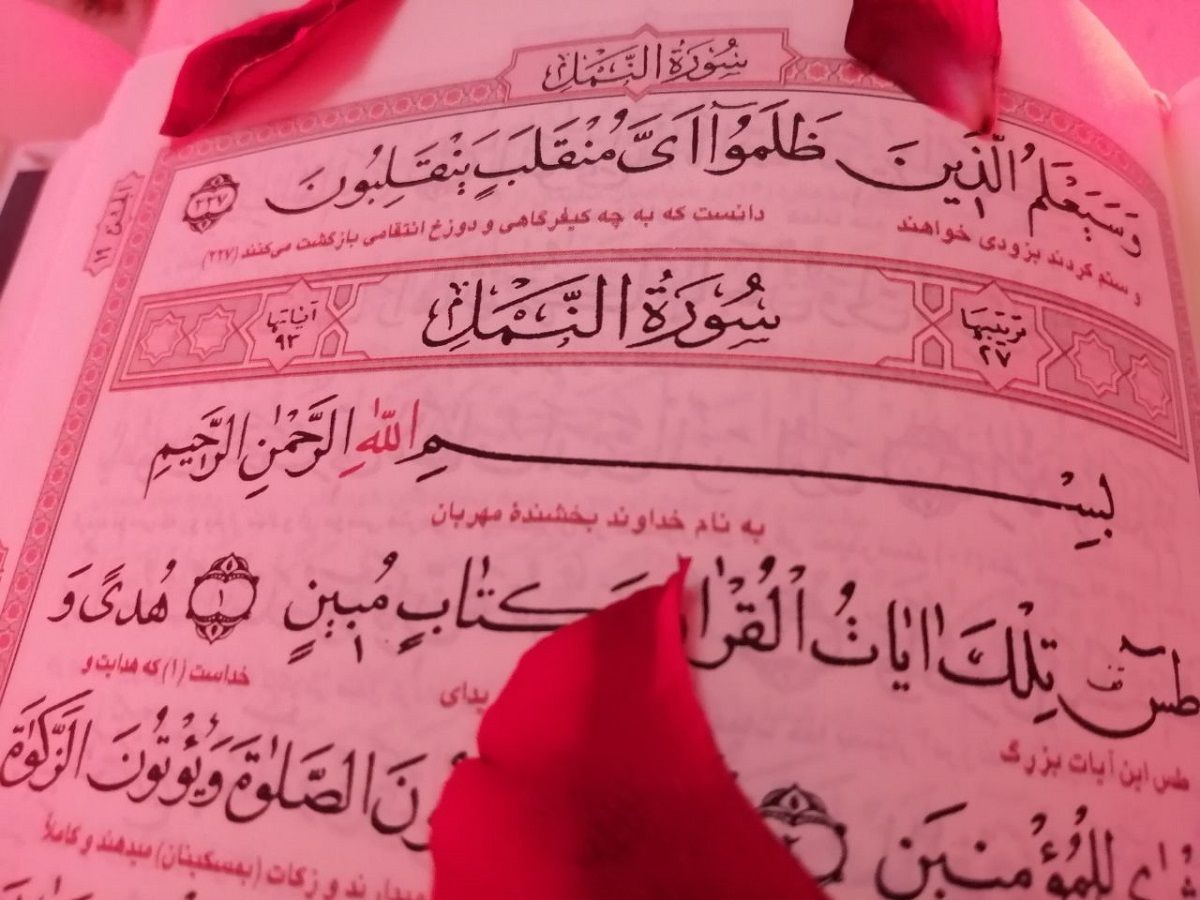 سُورَةُ النَّمْلِ
وَسَيَعْلَمُ الَّذِينَ ظَلَمُوٓا اَىَّ مُنْقَلَبٍ يَنْقَلِبُونَ ٢٢٧
و ستم کردند بزودی خواهند دانست که به چه کیفرگاهی و دوزخ انتقامی بازگشت می‌کنند (۲۲۷)
تَرتيبُها ٢٧
سُورَةُ النَّمْلِ
آياتها ٩٣
بِسْمِ اللّٰهِ الرَّحْمٰنِ الرَّحِيمِ
به نام خداوند بخشندهٔ مهربان
طٰسٓ تِلْكَ اٰيَاتُ الْقُرْاٰ كِتَابٍ مُبِينٍ ١ هُدًى وَ
طس این آیات بزرگ یدای خداست (۱) که هدایت و
لِلْمُؤْمِنِينَ ٢ نَ الصَّلٰوةَ وَيُؤْتُونَ الزَّكٰوةَ
ند و زکات (بمسکینان) میدهند و کاملاً